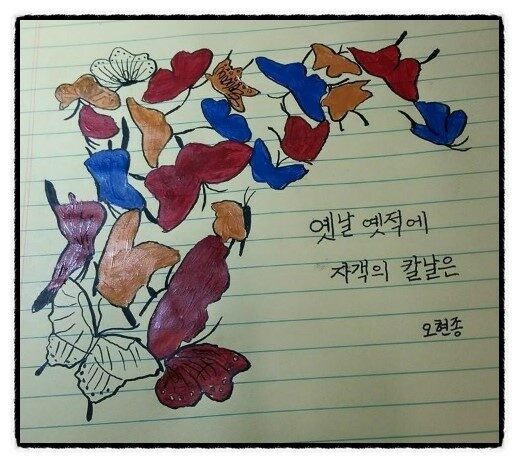 옛날 옛적에
자객의 칼날은
오현종